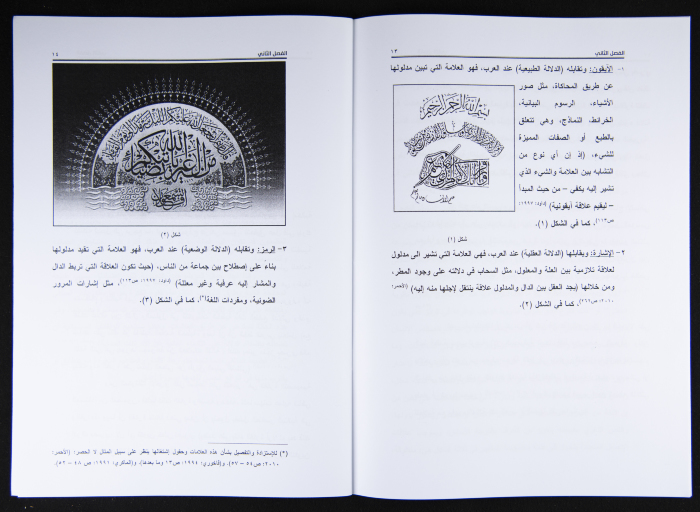 الفصل الثاني ١٣
١- الأيقون: وتقابله (الدلالة الطبيعية) عند العرب، فهو العلامة التي تبين مدلولها
عن طريق المحاكاة، مثل صور
الأشياء، الرسوم البيانية،
الخرائط، النماذج، وهي تتعلق
بالطبع أو الصفات المميزة
للشيء، (إذ إن أي نوع من
التشابه بين العلامة والشيء الذي
تشير إليه يكفي – من حيث المبدأ
– ليقيم علاقة أيقونية) (داود: ١٩٩٧،
ص١١٣). كما في الشكل (١).
بسم الله الرحمن الرحيم
شكل (١)
٢- الإشارة: ويقابلها (الدلالة العقلية) عند العرب، فهي العلامة التي تشير الى مدلول
لعلاقة تلازمية بين العلة والمعلول، مثل السحاب في دلالته على وجود المطر،
ومن خلالها (يجد العقل بين الدال والمدلول علاقة ينتقل لإجلها منه إليه) (الأحمر:
٢٠١٠، ص٢٦٦). كما في الشكل (٢).
الفصل الثاني ١٤
شكل (٢)
٣- الرمز: وتقابله (الدلالة الوضعية) عند العرب، فهو العلامة التي تفيد مدلولها
بناءً على إصطلاح بين جماعة من الناس، (حيث تكون العلاقة التي تربط الدال
والمشار إليه عرفية وغير معللة) (داود: ١٩٩٧، ص١١٣). مثل إشارات المرور
الضوئية، ومفردات اللغة(*). كما في الشكل (٣).
(*) للإستزادة والتفصيل بشأن هذه العلامات وحقول إشتغالها ينظر على سبيل المثال لا الحصر: (الأحمر:
٢٠١٠: ص٥٤ – ٥٧)، و(فاخوري: ١٩٩٤، ص١٣ وما بعدها)، و(الماكري: ١٩٩١، ص ٤٨ – ٥٢).